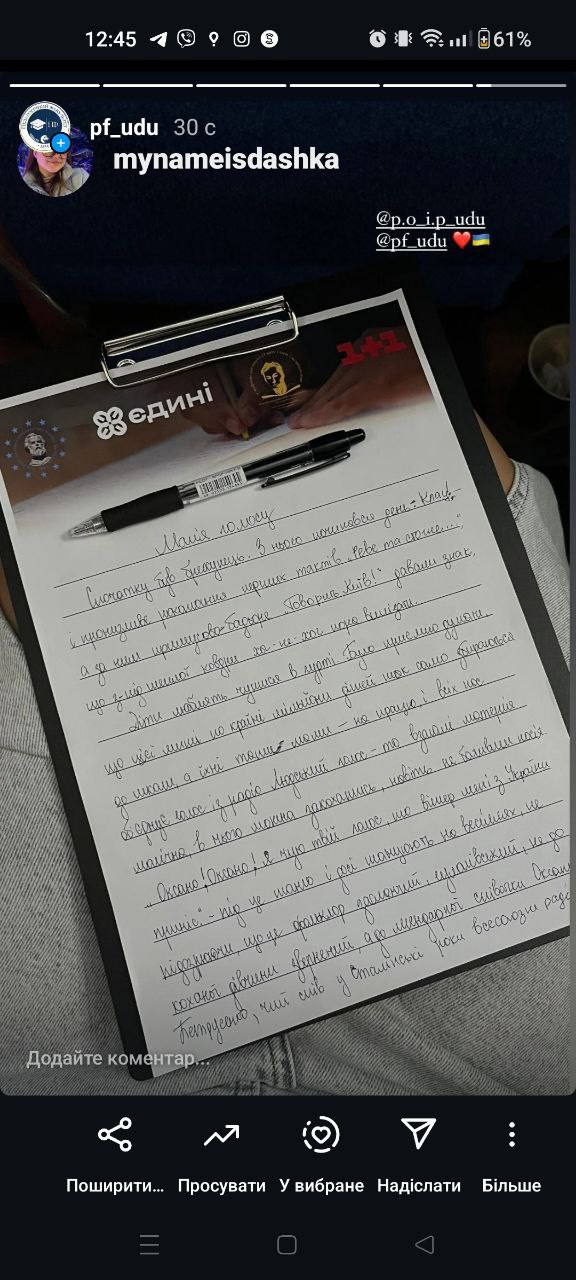 12:45
61%
pf_udu 30 с
mynameisdashka
@p.o_i.p_udu
@pf_udu
1+1
єдині
Магія голосу
Спочатку був брехунець. З нього починався день: Клац,
і пронизливе рокотання перших тактів „Реве та стогне...",
а за ним примусово-бадьоре „Говорить Київ!" давали знак,
що з-під теплої ковдри хо-не-хоч пора вилізати.
Діти люблять чутися в гурті. Було приємно думати,
що цієї миті по країні мільйони дітей так само збираються
до школи, а їхні тати й мами – на працю, і всіх нас
об'єднує голос із радіо. Людський голос – то взагалі матерія
магічна, в нього можна закохатись, навіть не бачивши носія.
„Оксано! Оксано! Я чую твій голос, то вітер мені з України
приніс" – під це танго і досі танцюють на весіллях, не
підозрюючи, що це фольклор зболений, гулагівський, не до
коханої дівчини звернений, а до легендарної співачки Оксани
Петрусенко, чий спів у сталінські роки всесоюзне радіо
Додайте коментар...
Поширити... Просувати У вибране Надіслати Більше